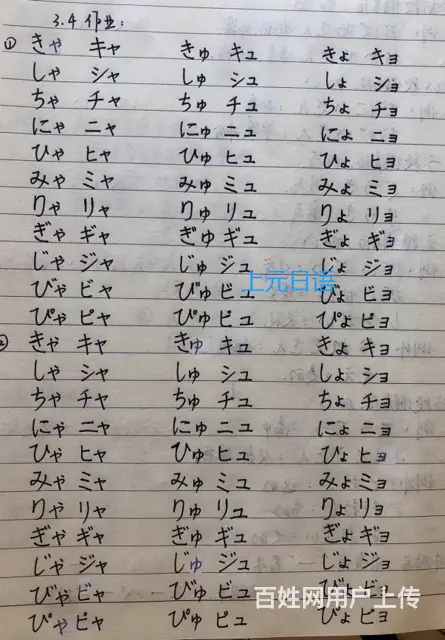 3.4 作业:
① きゃ キャ きゅ キュ きょ キョ
しゃ シャ しゅ シュ しょ ショ
ちゃ チャ ちゅ チュ ちょ チョ
にゃ ニャ にゅ ニュ にょ ニョ
ひゃ ヒャ ひゅ ヒュ ひょ ヒョ
みゃ ミャ みゅ ミュ みょ ミョ
りゃ リャ りゅ リュ りょ リョ
ぎゃ ギャ ぎゅ ギュ ぎょ ギョ
じゃ ジャ じゅ ジュ じょ ジョ
上元日语
びゃ ビャ びゅ ビュ びょ ビョ
ぴゃ ピャ ぴゅ ピュ ぴょ ピョ
② きゃ キャ きゅ キュ きょ キョ
しゃ シャ しゅ シュ しょ ショ
ちゃ チャ ちゅ チュ ちょ チョ
にゃ ニャ にゅ ニュ にょ ニョ
ひゃ ヒャ ひゅ ヒュ ひょ ヒョ
みゃ ミャ みゅ ミュ みょ ミョ
りゃ リャ りゅ リュ りょ リョ
ぎゃ ギャ ぎゅ ギュ ぎょ ギョ
じゃ ジャ じゅ ジュ じょ ジョ
びゃ ビャ びゅ ビュ びょ ビョ
百姓网用户上传
ぴゃ ピャ ぴゅ ピュ ぴょ ピョ